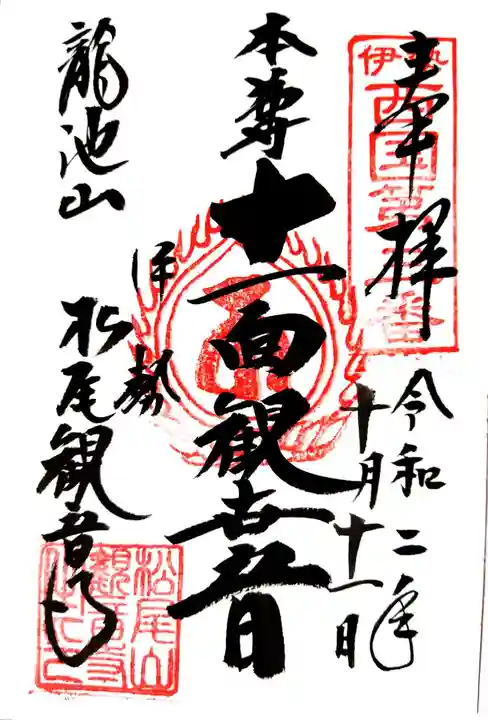 奉拝
伊勢
西国第三番
令和二年
十月十一日
本尊
十一面観世音
龍池山
伊勢
松尾観音寺
松尾山
観音寺